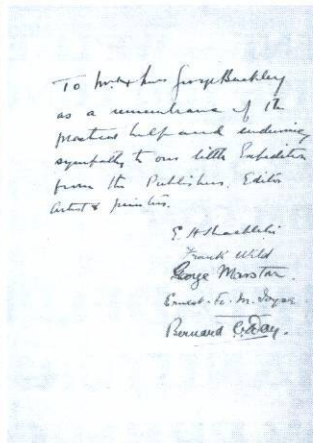 To Mr. & Mrs George Buckley
as a remembrance of the
practical help and enduring
sympathy to our little Expedition
from the Publishers. Editor
artist & printers.
E. H Shackleton
Frank Wild
George Marston.
Ernest. E. M. Joyce
Bernard C. Day.